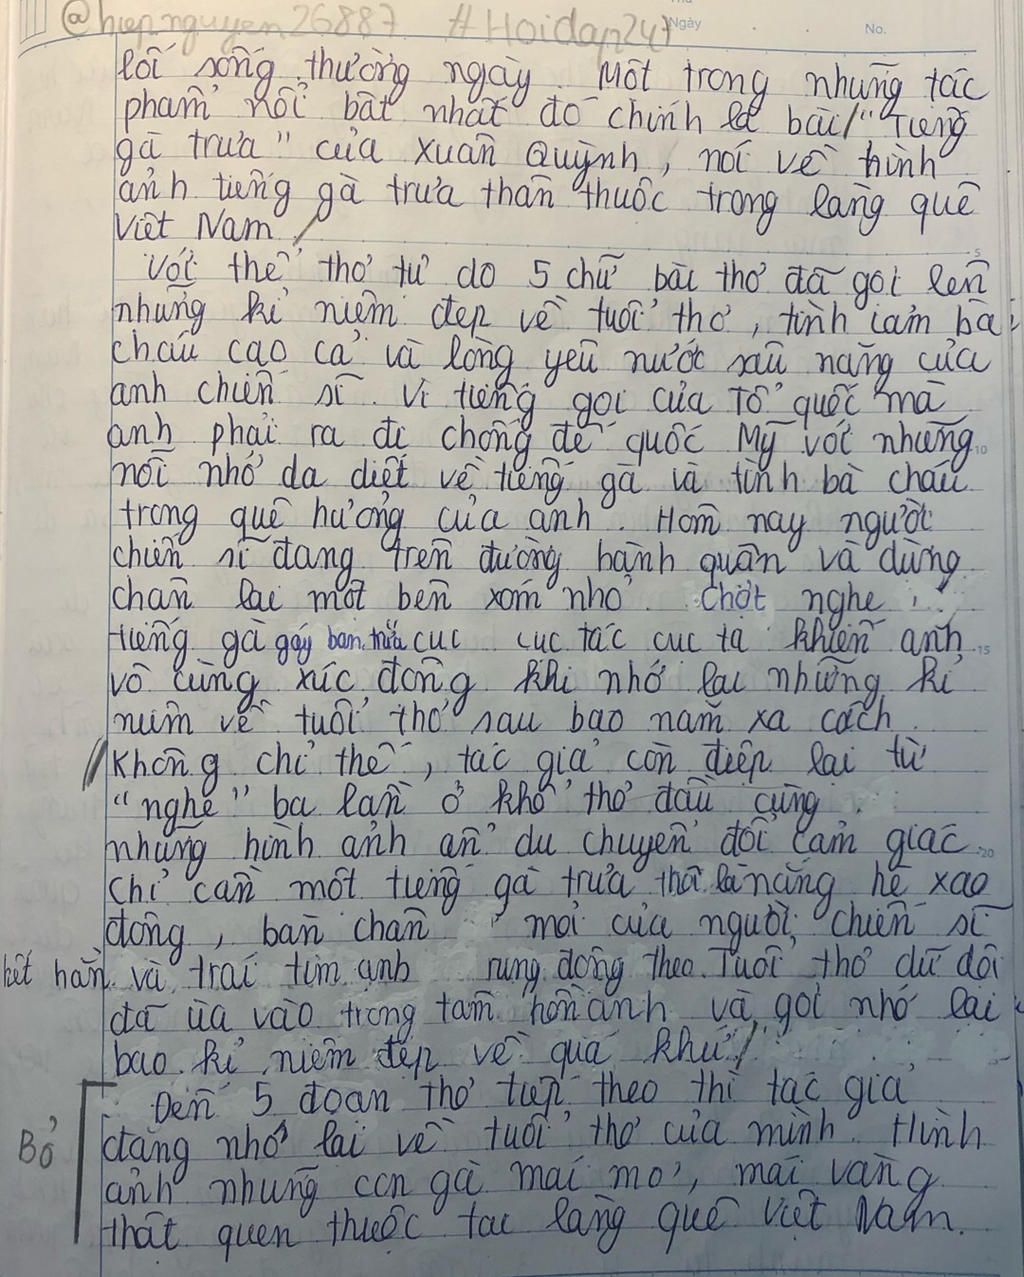 @hiepnguyen26887 #Hoidap247
Ngày No.
lối sống thường ngày. Một trong những tác
phẩm nổi bật nhất đó chính là bài "Tiếng
gà trưa" của Xuân Quỳnh, nói về hình
ảnh tiếng gà trưa thân thuộc trong làng quê
Việt Nam.
Với thể thơ tự do 5 chữ bài thơ đã gợi lên
những kỉ niệm đẹp về tuổi thơ, tình cảm bà
cháu cao cả và lòng yêu nước sâu nặng của
anh chiến sĩ. Vì tiếng gọi của Tổ quốc mà
anh phải ra đi chống đế quốc Mỹ với những
nỗi nhớ da diết về tiếng gà và tình bà cháu
trong quê hương của anh. Hôm nay người
chiến sĩ đang trên đường hành quân và dừng
chân lại một bên xóm nhỏ. Chợt nghe
tiếng gà gáy ban trưa cục cục tác cục ta khiến anh
vô cùng xúc động khi nhớ lại những kỉ
niệm về tuổi thơ sau bao năm xa cách.
Không chỉ thế, tác giả còn điệp lại từ
"nghe" ba lần ở khổ thơ đầu cùng
những hình ảnh ẩn dụ chuyển đổi cảm giác.
Chỉ cần một tiếng gà trưa thôi là nắng hè xao
động, bàn chân mỏi của người chiến sĩ
hết hẳn và trái tim anh rung động theo. Tuổi thơ dữ dội
đã ùa vào trong tâm hồn anh và gợi nhớ lại
bao kỉ niệm đẹp về quá khứ.
Đến 5 đoạn thơ tiếp theo thì tác giả
Bỏ
đang nhớ lại về tuổi thơ của mình. Hình
ảnh những con gà mái mơ, mái vàng
thật quen thuộc tại làng quê Việt Nam.